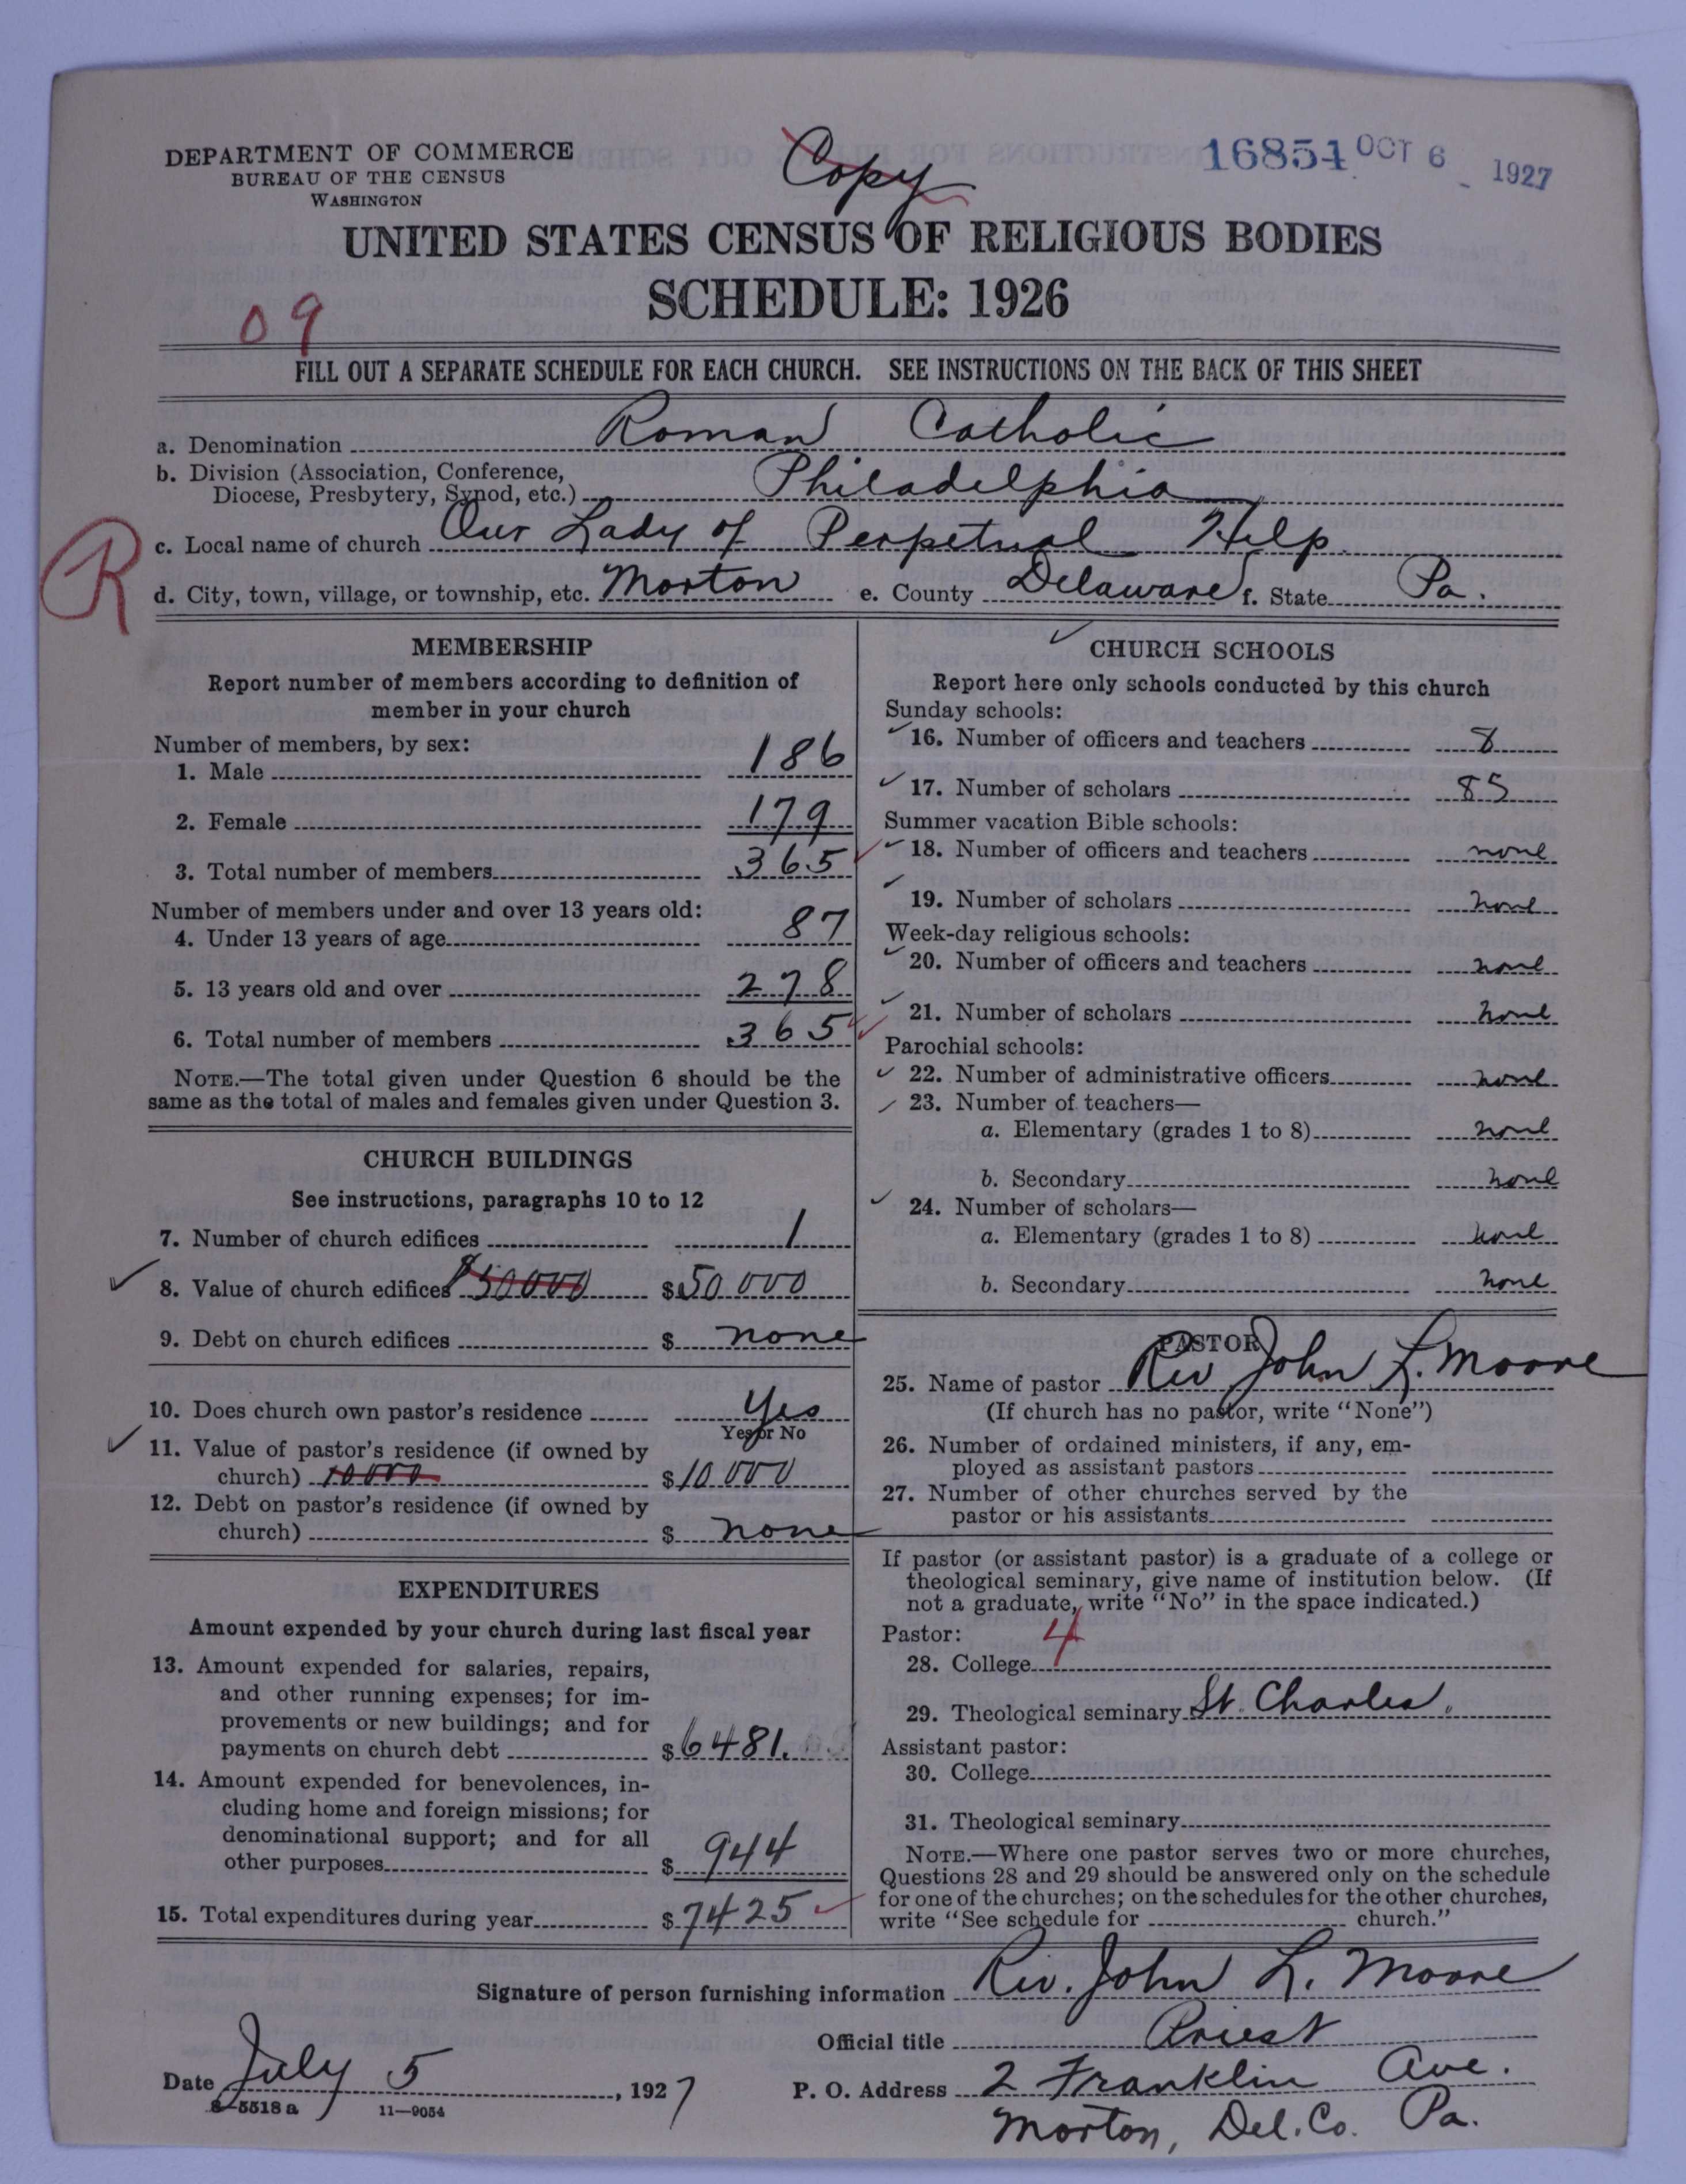 DEPARTMENT OF COMMERCE
BUREAU OF THE CENSUS
WASHINGTON
Copy
16854 OCT 6 1927
UNITED STATES CENSUS OF RELIGIOUS BODIES
SCHEDULE: 1926
09
FILL OUT A SEPARATE SCHEDULE FOR EACH CHURCH. SEE INSTRUCTIONS ON THE BACK OF THIS SHEET
a. Denomination Roman Catholic
b. Division (Association, Conference,
Diocese, Presbytery, Synod, etc.) Philadelphia
c. Local name of church Our Lady of Perpetual Help
R
d. City, town, village, or township, etc. Morton e. County Delaware f. State Pa.
MEMBERSHIP
Report number of members according to definition of
member in your church
Number of members, by sex:
1. Male 186
2. Female 179
3. Total number of members 365
Number of members under and over 13 years old:
4. Under 13 years of age 87
5. 13 years old and over 278
6. Total number of members 365
NOTE.—The total given under Question 6 should be the
same as the total of males and females given under Question 3.
CHURCH BUILDINGS
See instructions, paragraphs 10 to 12
7. Number of church edifices 1
8. Value of church edifices $50000 $50 000
9. Debt on church edifices $ none
10. Does church own pastor's residence Yes
Yes or No
11. Value of pastor's residence (if owned by
church) 10000 $10 000
12. Debt on pastor's residence (if owned by
church) $ none
EXPENDITURES
Amount expended by your church during last fiscal year
13. Amount expended for salaries, repairs,
and other running expenses; for im-
provements or new buildings; and for
payments on church debt $6481.
14. Amount expended for benevolences, in-
cluding home and foreign missions; for
denominational support; and for all
other purposes $ 944
15. Total expenditures during year $7425
CHURCH SCHOOLS
Report here only schools conducted by this church
Sunday schools:
16. Number of officers and teachers 8
17. Number of scholars 85
Summer vacation Bible schools:
18. Number of officers and teachers none
19. Number of scholars none
Week-day religious schools:
20. Number of officers and teachers none
21. Number of scholars none
Parochial schools:
22. Number of administrative officers none
23. Number of teachers—
a. Elementary (grades 1 to 8) none
b. Secondary none
24. Number of scholars—
a. Elementary (grades 1 to 8) none
b. Secondary none
PASTOR
25. Name of pastor Rev John L. Moore
(If church has no pastor, write "None")
26. Number of ordained ministers, if any, em-
ployed as assistant pastors
27. Number of other churches served by the
pastor or his assistants
If pastor (or assistant pastor) is a graduate of a college or
theological seminary, give name of institution below. (If
not a graduate, write "No" in the space indicated.)
Pastor: 4
28. College
29. Theological seminary St. Charles.
Assistant pastor:
30. College
31. Theological seminary
NOTE.—Where one pastor serves two or more churches,
Questions 28 and 29 should be answered only on the schedule
for one of the churches; on the schedules for the other churches,
write "See schedule for church."
Signature of person furnishing information Rev. John L. Moore
Official title Priest
Date July 5, 1927
P. O. Address 2 Franklin Ave.
8—5518 a 11—9054
Morton, Del. Co. Pa.